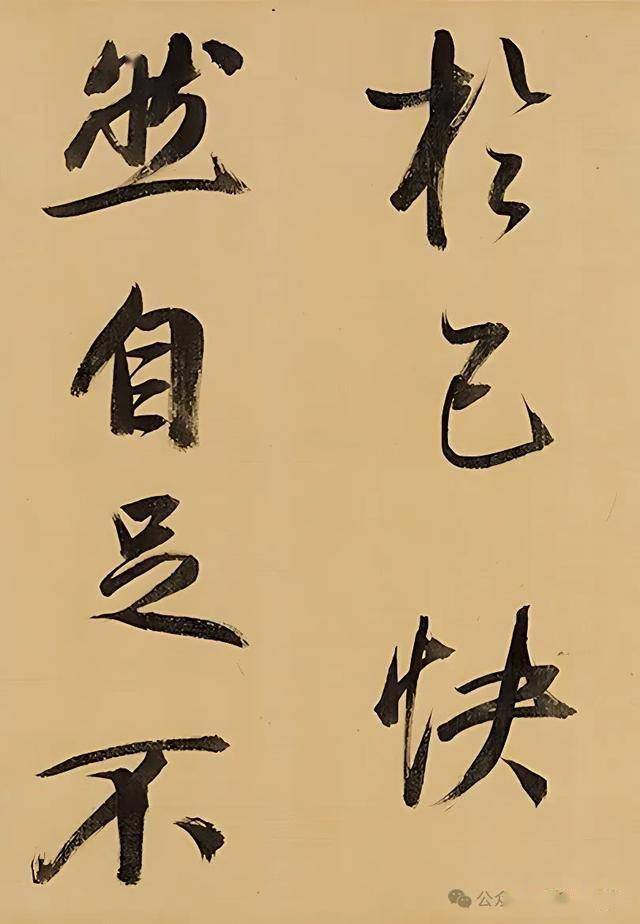 於己快
然自足不
公众